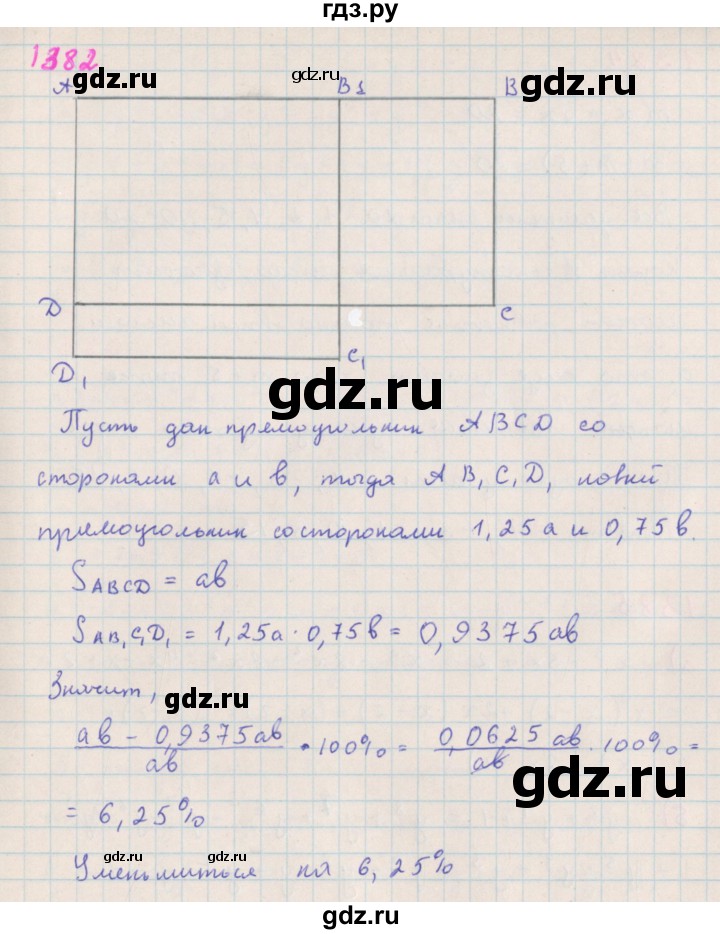 гдз.ру
1382
gdz.ru
gdz.ru
gdz.ru
A B1 B
D C
D1 C1
gdz.ru
Пусть дан прямоугольник ABCD со
сторонами a и b, тогда AB1C1D1 новый
прямоугольник со сторонами 1,25a и 0,75b.
SABCD = ab
SAB1C1D1 = 1,25a · 0,75b = 0,9375ab
Значит,
gdz.ru
ab - 0,9375ab / ab · 100% = 0,0625ab / ab · 100% =
gdz.ru
= 6,25%
gdz.ru
gdz.ru
Уменьшиться на 6,25%
gdz.ru